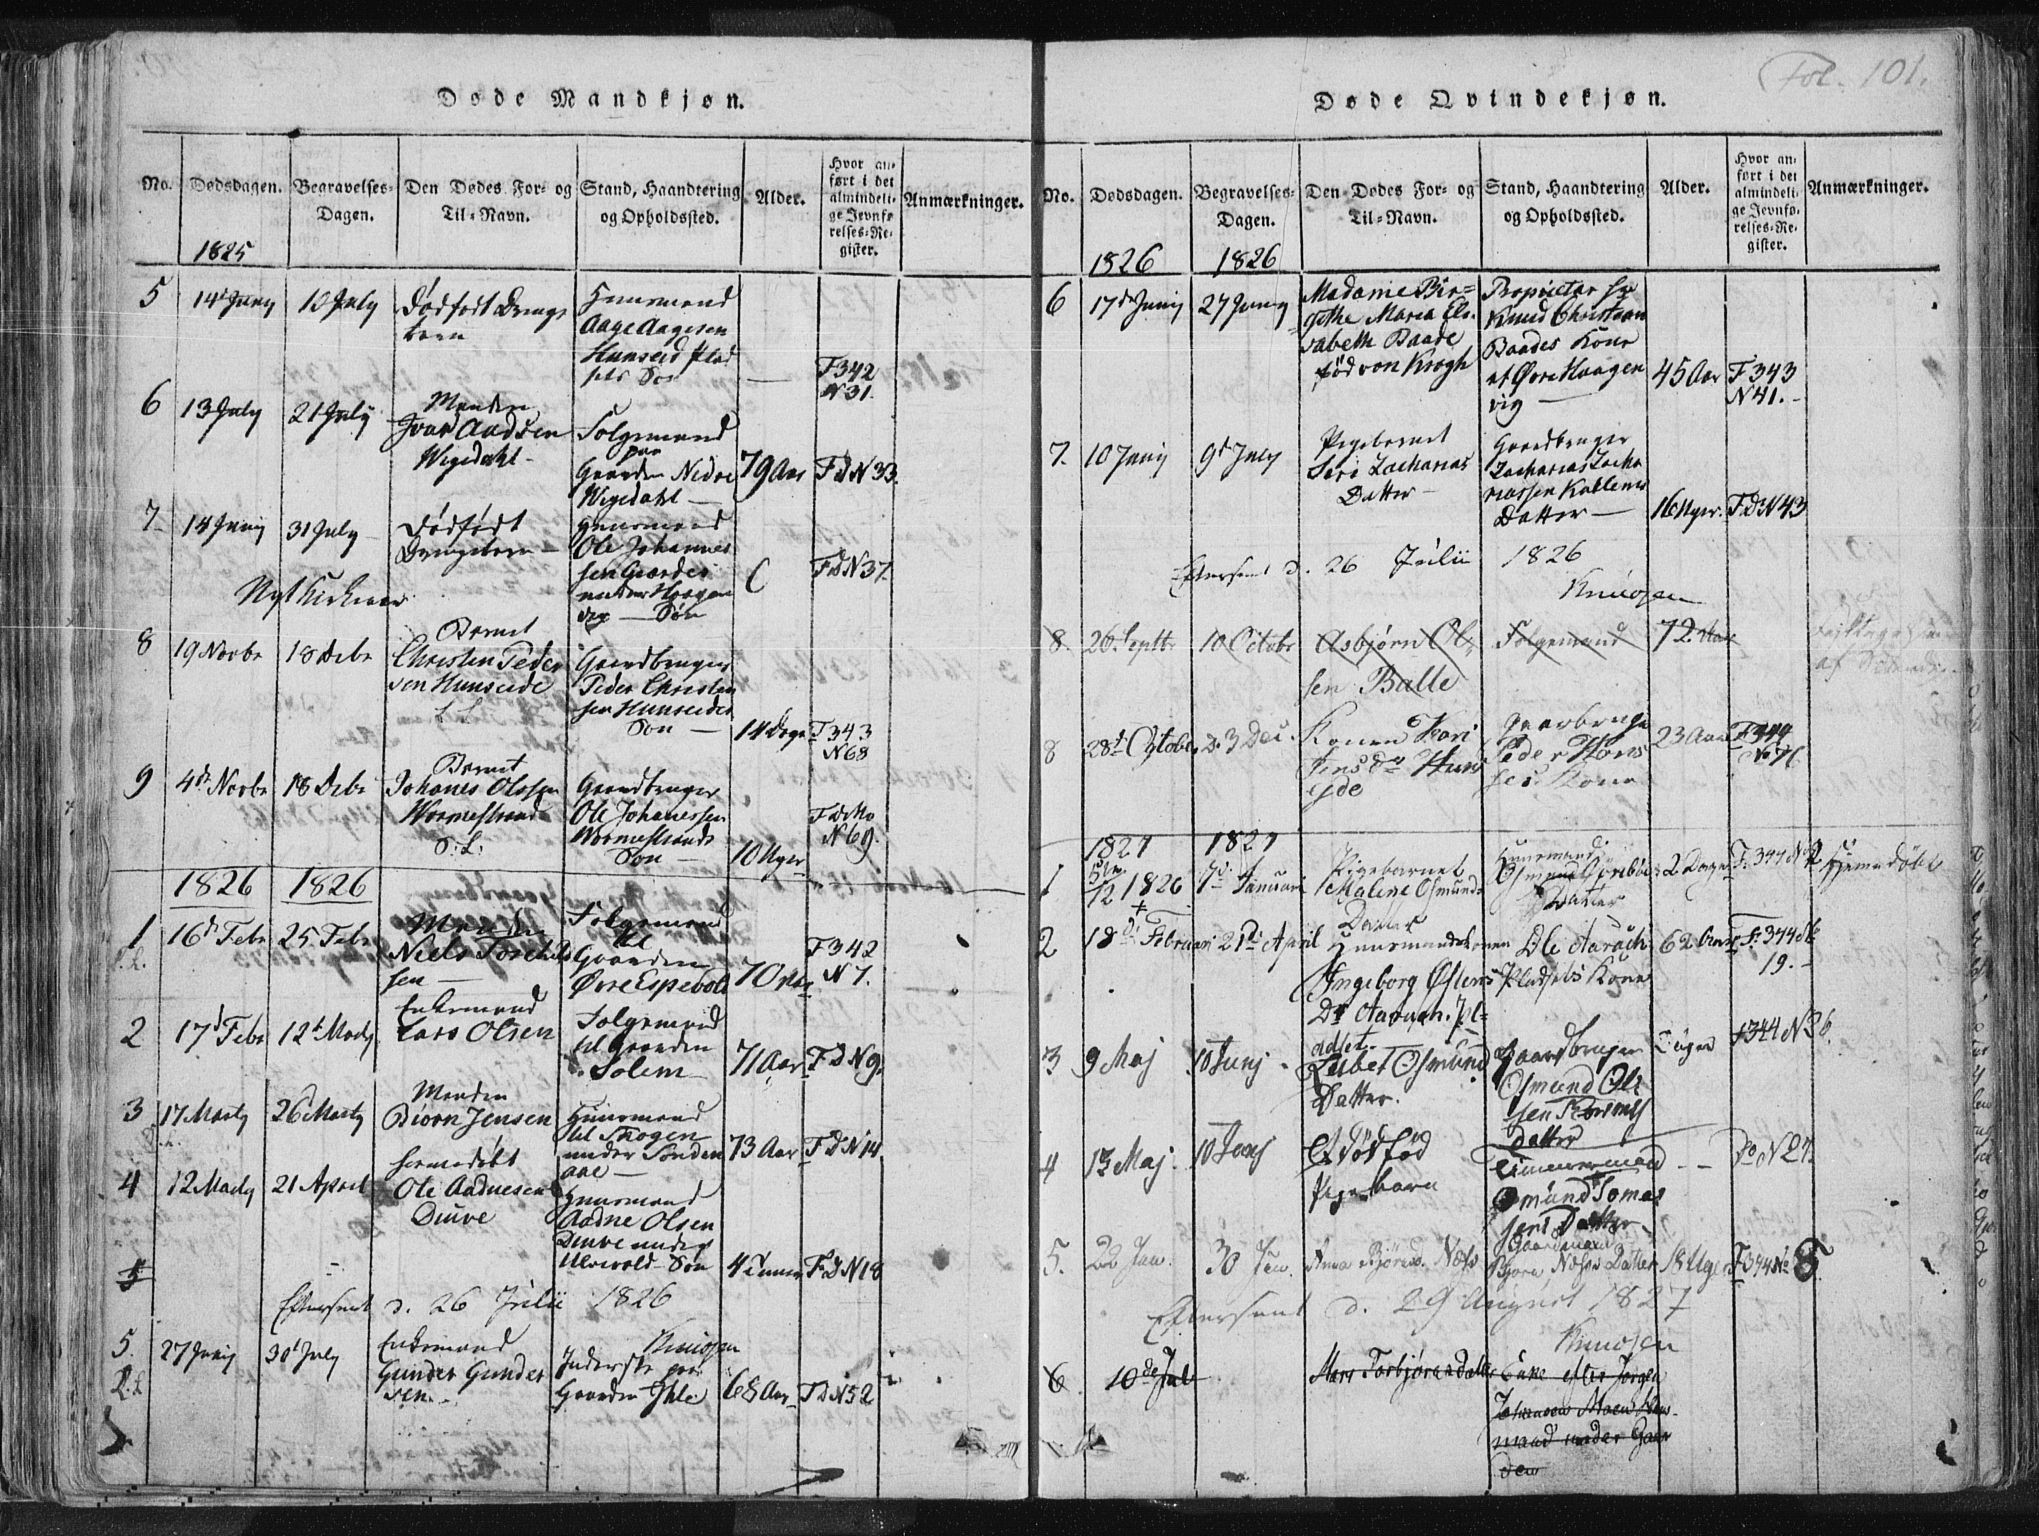 Fol. 101.
Døde Mandkjøn.
No.
Dødsdagen.
Begravelses-
Dagen.
Den Dødes For- og
Til-Navn.
Stand, Haandtering
og Opholdssted.
Alder.
Hvor an-
ført i det
almindeli-
ge Jevnfø-
relses-Re-
gister.
Anmærkninger.
1825
5
14d Juny
10 July
Dødfødt Drenge
barn
Huusmand
Aage Aagesen
Hunseid Plad
sets Søn
F 342
N 31.
6
13 July
21 July
Manden
Ivar Aadsen
Wigedahl
Folgemand
paa
Gaarden Nedre
Wigedahl
79 Aar
F D N 33.
7
14 Juny
31 July
Dødfødt
Drengebarn
Huusmand
Ole Johannes
sen Giærdes
under Haagen
vig Søn
F D N 37.
8
19 Novbr
18 Debr
Barnet
Christen Peder
sen Hunseide
Gaardbruger
Peder Christen
sen Hunseides
Søn
14 Dage
F 343
N 68
9
4de Novbr
18 Debr
Barnet
Johanes Olssen
Wormestrand
S. L.
Gaardbruger
Ole Johanessen
Wormestrands
Søn
10 Uger
N 69.
1826
1826
1
16d Febr
25 Febr
Manden
Niels Torchels
sen
Folgemand
til
Gaarden
Øvre Espebole
70 Aar
F 342
N 7.
2
17d Febr
12t Martz
Enkemand
Lars Olsen
Folgemand
til Gaarden
Solem
71 Aar
F D N 9.
3
17 Marty
26 Marty
Manden
Biørn Jensen
Huusmand
til Skogen
under Sonden
aae
73 Aar
F D N 14
4
12 Marty
21 April
hiemedøbt
Ole Aadnesen
Diuve
Huusmand
Aadne Olsen
Diuve under
Ulevold Søn
4 Timer
F D N 18
5
Efterseet d. 26 Julii 1826
Knudsen
5.
27 Juny
30t July
Enkemand
Gunder Gunder
sen
Inderste paa
Gaarden Ihle
68 Aar
F D N 52
Døde Qvindekjøn.
No.
Dødsdagen.
Begravelses-
Dagen.
Den Dødes For- og
Til-Navn.
Stand, Haandtering
og Opholdssted.
Alder.
Hvor an-
ført i det
almindeli-
ge Jevnfø-
relses-Re-
gister.
Anmærkninger.
1826
1826
6
17de Juny
27 Juny
Madame Bir-
githe Maria Eli-
sabeth Baade
fød von Krogh
Proprietær Hr
Knud Christian
Baades Kone
at Øvre Haagen
vig
45 Aar
F 343
N 41.
7.
10 Juny
9d July
Pigebarnet
Siri Zacharias
Datter
Gaardbruger
Zacharias Zacha
riassen Kallems
Datter
16 Uger
F D N 43
Efterseet d. 26 Julii 1826
Knudsen
8.
26 Septbr
10 Octobr
Asbjørn Ol
sen Balle
Folgemand
72 Aar
8
28d Octobr
d. 3 Dec.
Konen Kari
Jens Dr Huns
ejde
Gaardbruger
Peder Hans
ses Kone
23 Aar
F 344
No 76
1827
1827
1
12 1826
7de Januari
Pigebarnet
Malene Osmunds
Datter
Huusmand
Datter
2 Dage
F. 344 No 2
Hjemmedøbt
2
18de Februari
21de April
Huusmandskonen
Ingeborg Østens
Dr Aarach Pl-
adset
Ole Aarach
Pladsets Kone
62 Aar
F. 344 N
19.
3
9 Maj
10 Junj
Lisbet Osmund
Datter.
Gaardbruger
Osmund Ol
sen
Datter
F 344 N 26.
4
13 Maj
10 Junj
Et Dødfød
Pigebarn
Osmund Tomas
sens Datter
Do N 27.
5.
22 Jan.
30 Jan.
Anna Bjørnsd. Næss
Gaardmand
Bjørn Næses Datter
18 Uger
F 344 No 8
Eftersent d. 29 August 1827
Knudsen
6
10de Jul
Mari Torbjørnsdatter
Enke efter Jørgen
Johansen Moen Huus-
mand under Gaar
den